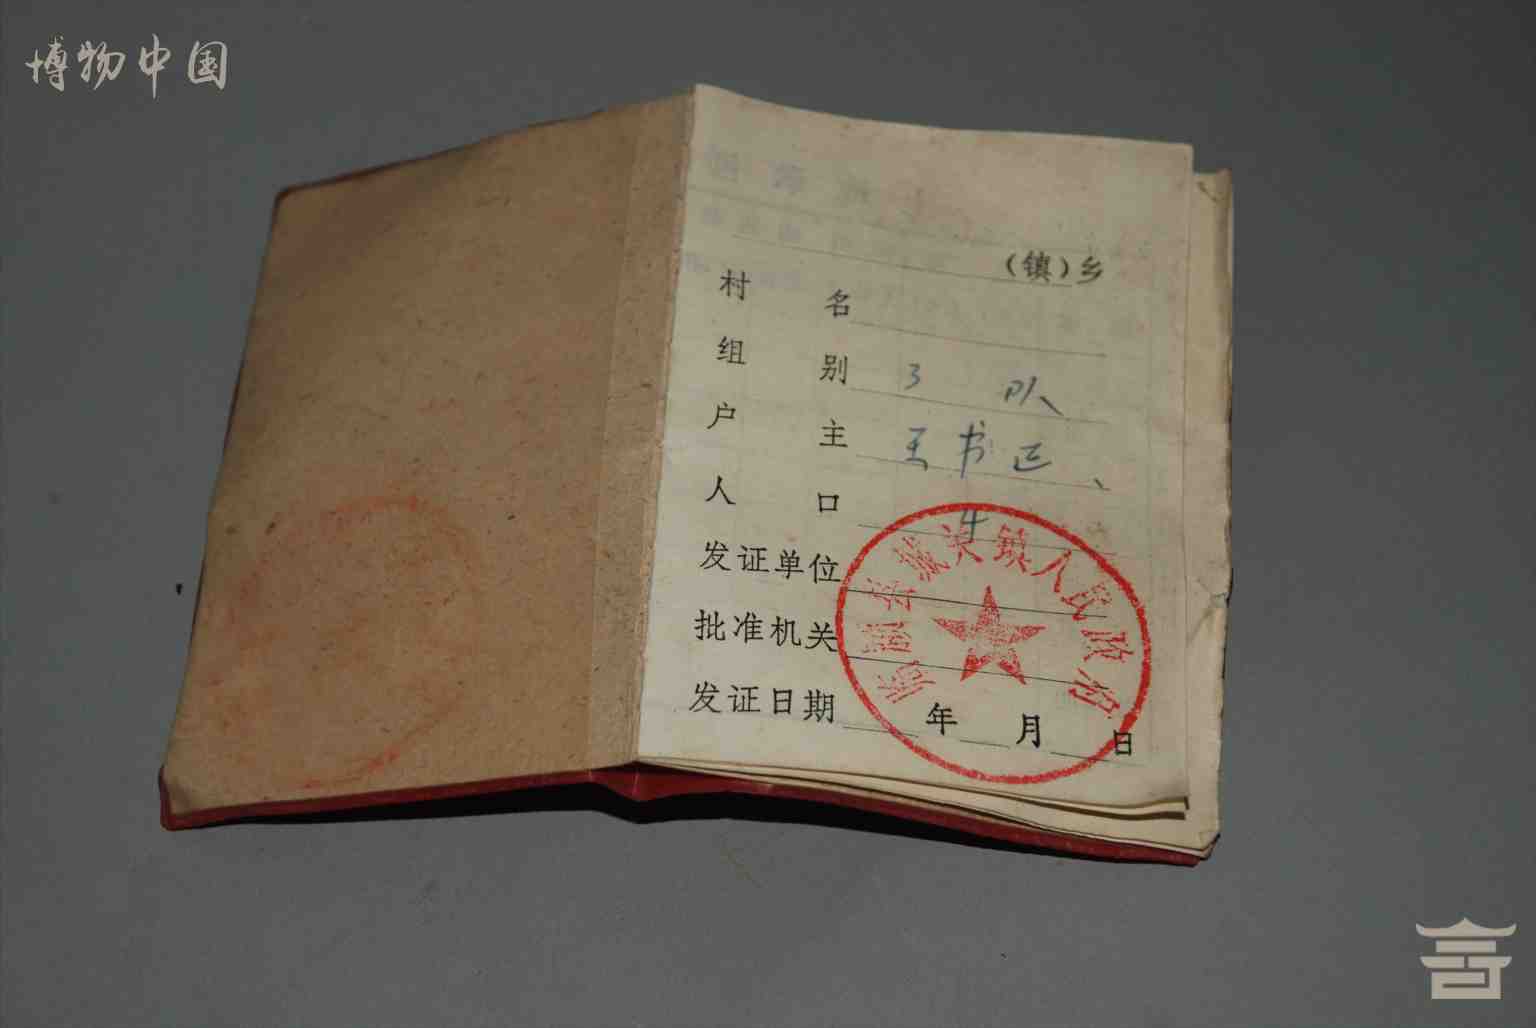 博物中国
(镇)乡
村 名
组 别 3 队
户 主 王书正
人 口 4
发证单位
批准机关
发证日期 年 月 日
城关镇人民政府